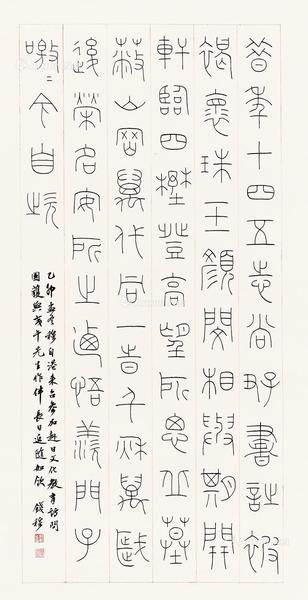 昔年十四五志尚好書詩被
褐懷珠玉顏閔相與期開
軒臨四野登高望所思丘墓
蔽山岡萬代同一時千秋萬歲
後榮名安所之迺悟羨門子
噭〻今自蚩
自港來台參加赴日文化教育訪問
團獲與先生作伴長日追隨 錢穆